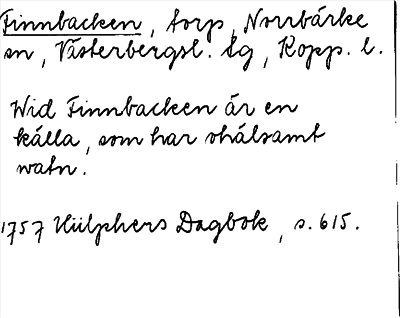 Finnbacken, torp, Norrbärke
sn, Västerbergsl. lg, Kopp. l.
Wid Finnbacken är en
källa, som har ohälsamt
watn.
1757 Hülphers Dagbok, s. 615.